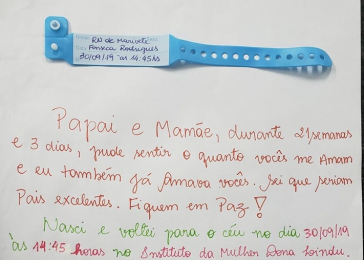 RN de Marineti
Fonseca Rodrigues
30/09/19 as 14:45hs
Papai e Mamãe, durante 21 semanas
e 3 dias, pude sentir o quanto vocês me Amam
e eu também já Amava vocês. Sei que seriam
Pais excelentes. Fiquem em Paz!
Nasci e voltei para o céu no dia 30/09/19
às 14:45 horas no Instituto da Mulher Dona Lindu.